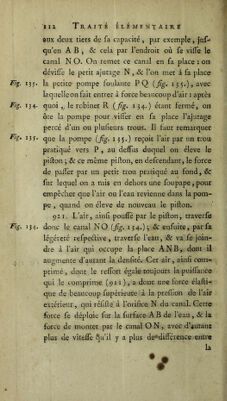 112 TRAITÉ ÉLÉMENTAIRE
aux deux tiers de sa capacité, par exemple, jus-
qu'en AB, & cela par l'endroit où se visse le
canal NO. On remet ce canal en sa place : on
dévisse le petit ajutage N, & l'on met à sa place
Fig. 135. la petite pompe foulante PQ (fig. 135.), avec
laquelle on fait entrer à force beaucoup d'air : après
Fig. 134. quoi, le robinet R (fig. 134.) étant fermé, on
ôte la pompe pour visser en sa place l'ajutage
percé d'un ou plusieurs trous. Il faut remarquer
Fig. 135. que la pompe (fig. 135.) reçoit l'air par un trou
pratiqué vers P, au dessus duquel on éleve le
piston ; & ce même piston, en descendant, le force
de passer par un petit trou pratiqué au fond, &
sur lequel on a mis en dehors une soupape, pour
empêcher que l'air ou l'eau revienne dans la pom-
pe, quand on éleve de nouveau le piston.
921. L'air, ainsi poussé par le piston, traverse
Fig. 134. donc le canal NO (fig. 134.) ; & ensuite, par sa
légéreté respective, traverse l'eau, & va se join-
dre à l'air qui occupe la place ANB, dont il
augmente d'autant la densité. Cet air, ainsi com-
primé, dont le ressort égale toujours la puissance
qui le comprime (911), a donc une force élasti-
que de beaucoup supérieure à la pression de l'air
extérieur, qui résiste à l'orifice N du canal. Cette
force se déploie sur la surface AB de l'eau, & la
force de monter par le canal ON, avec d'autant
plus de vitesse qu'il y a plus de différence entre
la